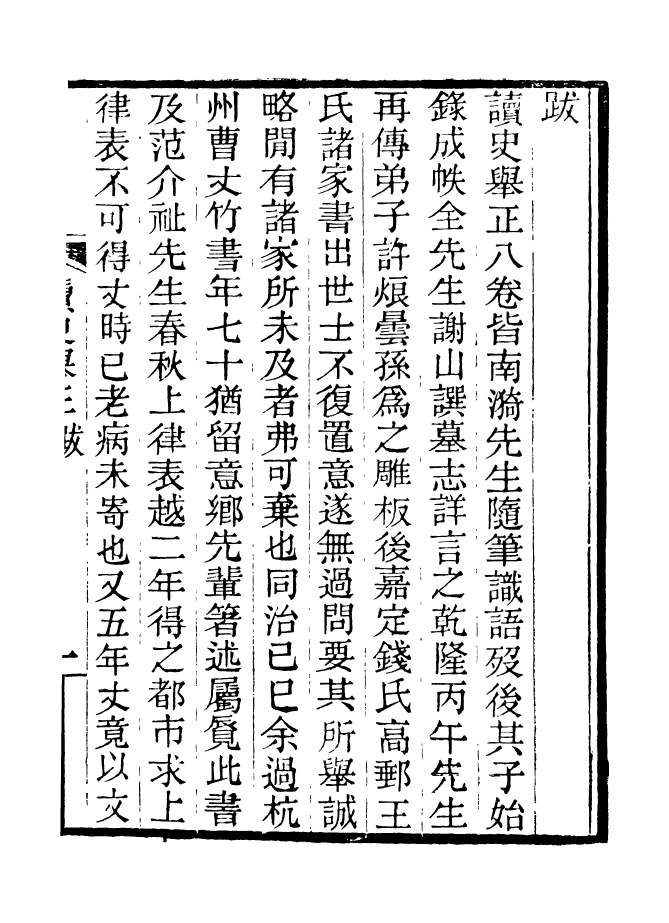 跋
讀史舉正八卷皆南漪先生隨筆識語歿後其子始
錄成帙全先生謝山譔墓志詳言之乾隆丙午先生
再傳弟子許烺曇孫爲之雕板後嘉定錢氏高郵王
氏諸家書出世士不復置意遂無過問要其所舉誠
略閒有諸家所未及者弗可棄也同治己巳余過杭
州曹丈竹書年七十猶留意鄉先輩箸述屬覓此書
及范介祉先生春秋上律表越二年得之都市求上
律表不可得丈時已老病未寄也又五年丈竟以文
讀史舉正跋
一